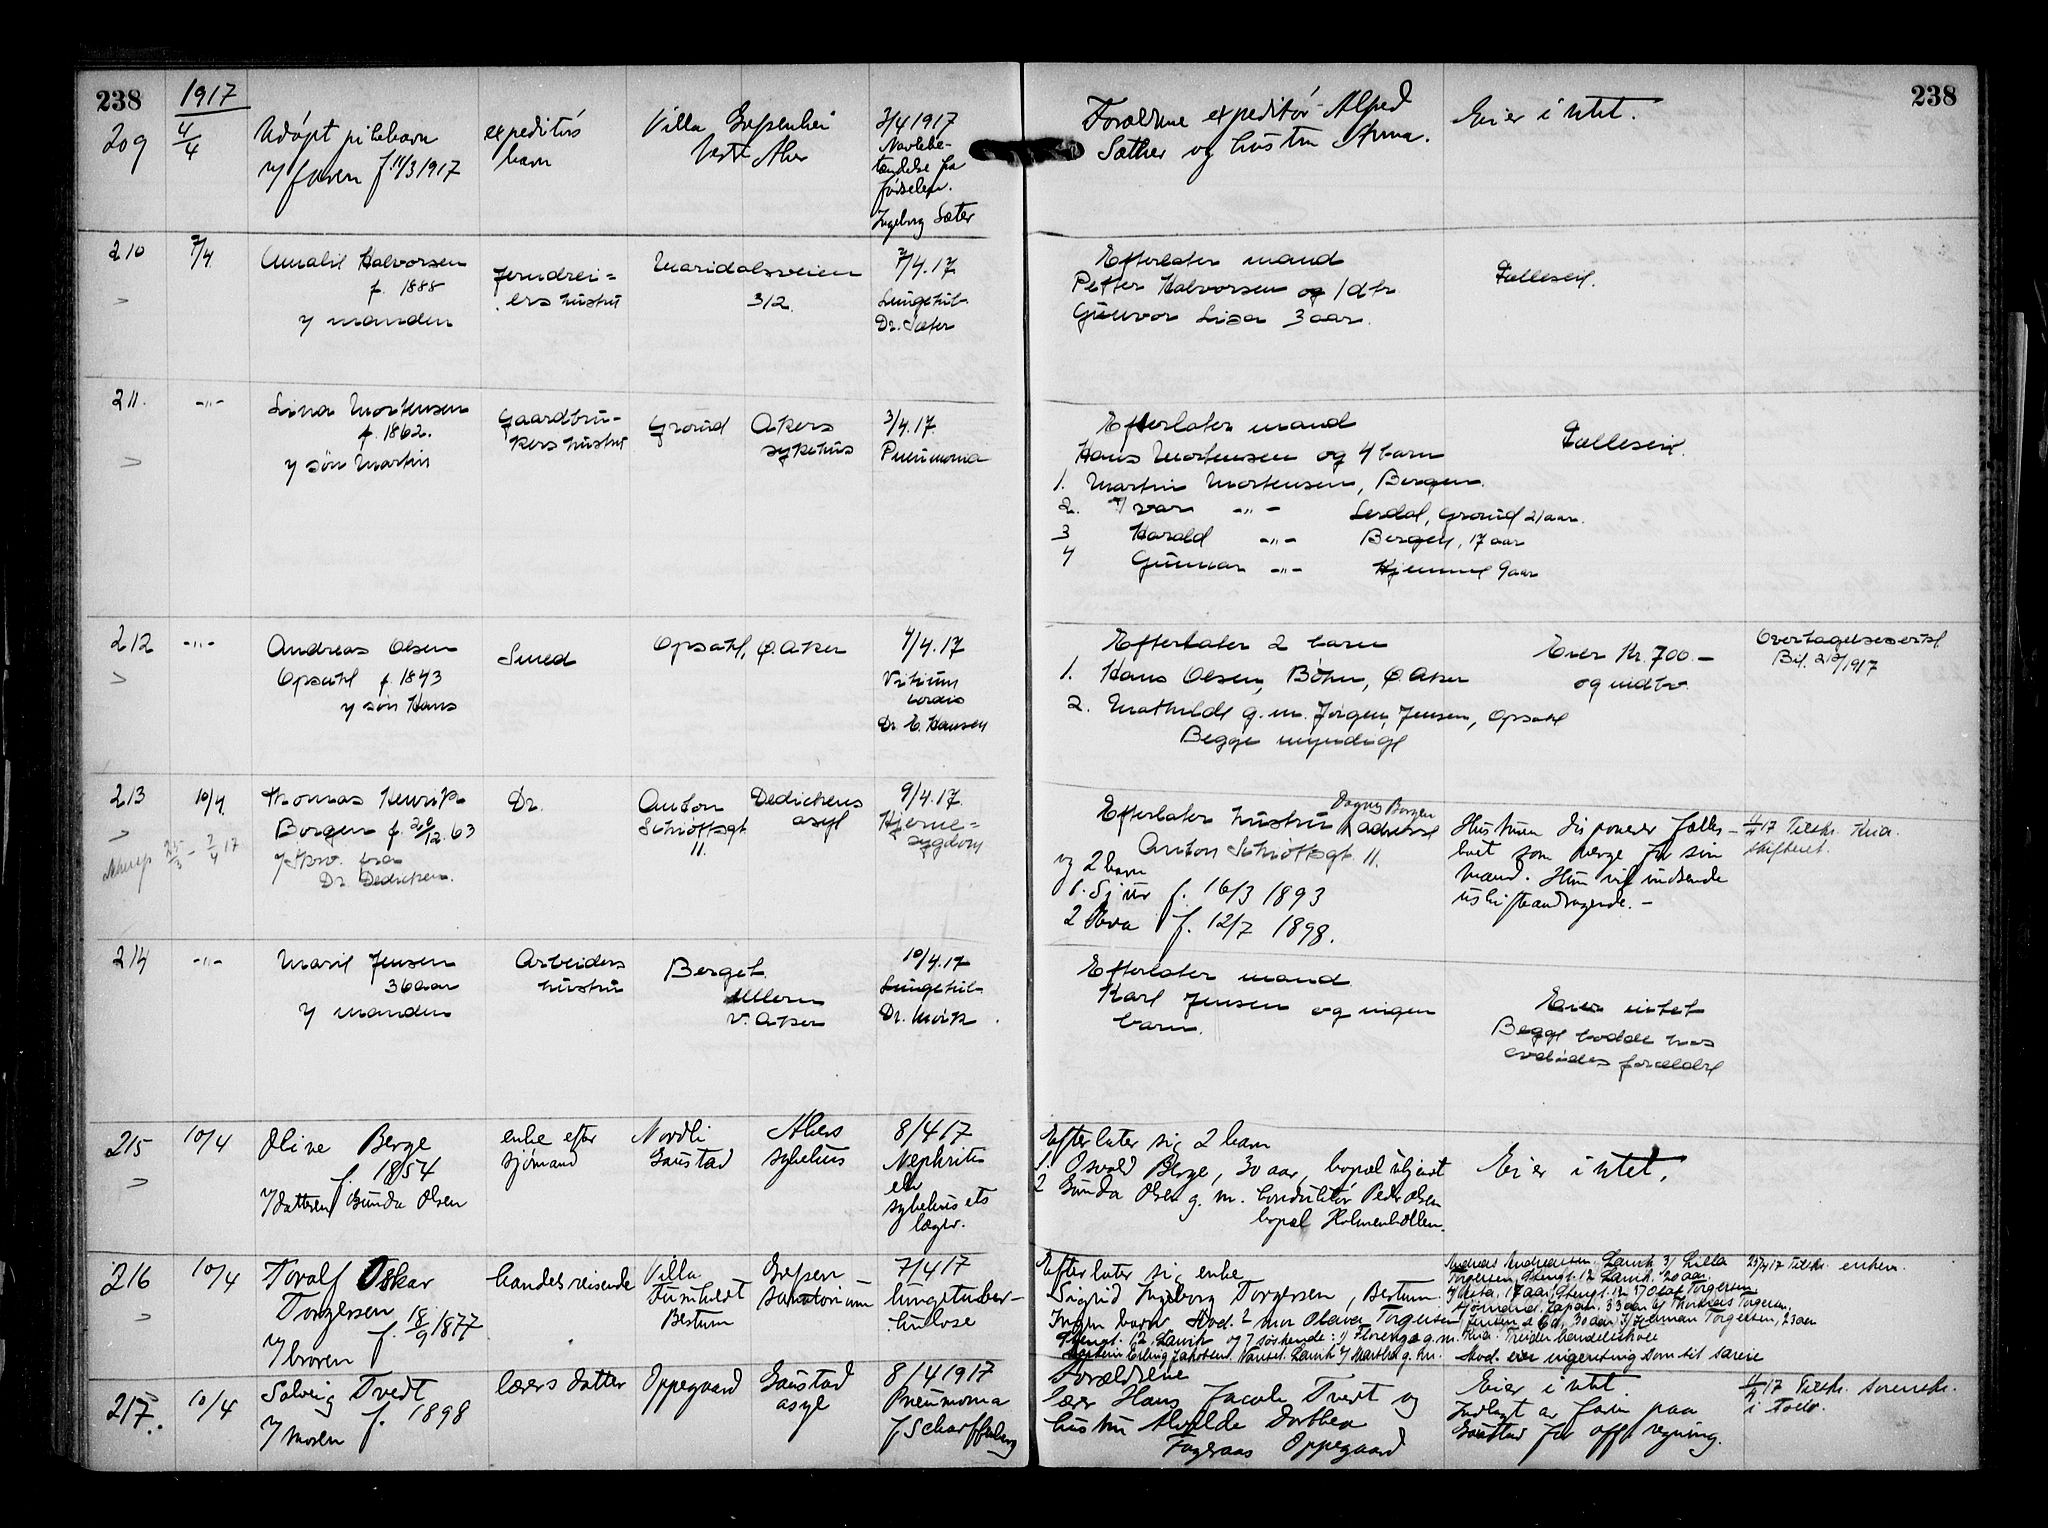 238
1917
238
209
4/4
Udøpt pikebarn
v/ faren f. 11/3 1917
expeditørs
barn
Villa Grefsenhei
Vestre Aker
3/4 1917
Navlebe-
tændelse fra
fødselen.
Ingeborg Sæter
Forældrene expeditør Alfred
Sæther og hustru Anna.
Eier intet.
210
7/4
Amalie Halvorsen
f. 1888
v/ manden
Jerndrei=
ers hustru
Maridalsveien
312.
7/4.17
Lungetub.
Dr. Sæter
Efterlater mand
Petter Halvorsen og 1 dtr
Gunvor Lisa 3 aar.
Fælleseie.
211.
-"-
Lina Mortensen
f. 1862.
v/ søn Martin
Gaardbru-
kers hustru
Grorud
Akers
sykehus
3/4.17.
Pneumonia
Efterlater mand
Hans Mortensen og 4 barn
1. Martin Mortensen, Bergen.
2. Ivar -"- Lerdal, Grorud 21 aar.
3 Harald -"- Bergen, 17 aar
4 Gunnar -"- Hjemme 9 aar
Fælleseie.
212
-"-
Andreas Olsen
Opsahl f. 1843
v/ søn Hans
Smed
Opsahl, Ø. Aker
4/4.17
Vitium
cordis
Dr. E. Hansen
Efterlater 2 barn
1. Hans Olsen, Bøhn, Ø. Aker
2. Mathilde g.m. Jørgen Jensen, Opsahl
Begge myndige
Eier Kr. 700.-
og indbo.
Overtagelseserkl
Bil. 212/1917
213
10/4.
Thomas Henrik
Borgen f. 20/12.63
Dr. Dedichen.
Dr.
Anton
Schiøttsgt
11.
Dedichens
asyl
9/4.17.
Hjerne=
sygdom
Efterlater hustru Dagny Borgen
adresse
Anton Schiøttsgt. 11.
og 2 barn
1. Sjur f. 16/3 1893
2 f. 12/7 1898.
Hustruen disponerer fælles-
boet som verge for sin
mand. Hun vil indsende
uskifteandragende. -
11/4 17 Tilskr. Kria.
skifteret.
214
-"-
Marie Jensen
36 aar
v/ manden
Arbeiders
hustru
Berget.
Ullern
V. Aker
10/4.17
Lungetub.
Dr. Mørk.
Efterlater mand
Karl Jensen og ingen
barn.
Eier intet
Begge bodde hos
avdødes forældre
215
10/4
Olive Berge
f. 1854
v/ datteren Gunda Olsen
enke efter
sjømand
Nordli
Gaustad
Akers
sykehus
8/4 17
Nephritis
sykehusets
læger.
Efterlater sig 2 barn
1. Osvald Berge, 30 aar, bopæl ukjendt
2 Gunda Olsen g.m. konduktør Peder Olsen
bopæl Holmenkollen.
Eier intet.
216
10/4
Torolf Oskar
Torgersen
v/ broren f. 18/9 1877
handelsreisende
Villa
Furuholdt
Bestum
Grefsen
sanatorium
7/4 17
lungetuber-
kulose
Efterlater sig enke
Sigrid Ingeborg Torgersen, Bestum
Ingen barn mor Olava Torgersen
12 Larvik og 7 søskende: 1/ Florence g.m.
Andreas Andreassen, Larvik 3/ Lilla
Torgersen 12 Larvik. 20 aar.
17 aar Olaf Torgersen
sjømand. Japan. 33 aar
30 aar Torgersen, 23 aar
Kria. Treider handelsskole
21/4 17 Tilskr. enken.
217.
10/4
Solveig Tvedt
v/ moren f. 1898
lærers datter
Oppegaard
Gaustad
asyl
8/4 1917
Pneumonia
/ Scharffenberg
Forældrene
lærer Hans Jacob Tvedt og
hustru Alvilde Dorthea
Fageraas Oppegaard
Eier intet.
Indlagt av faren paa
Gaustad for off. regning.
11/4 17 Tilskr. sorenskr.
i Follo.